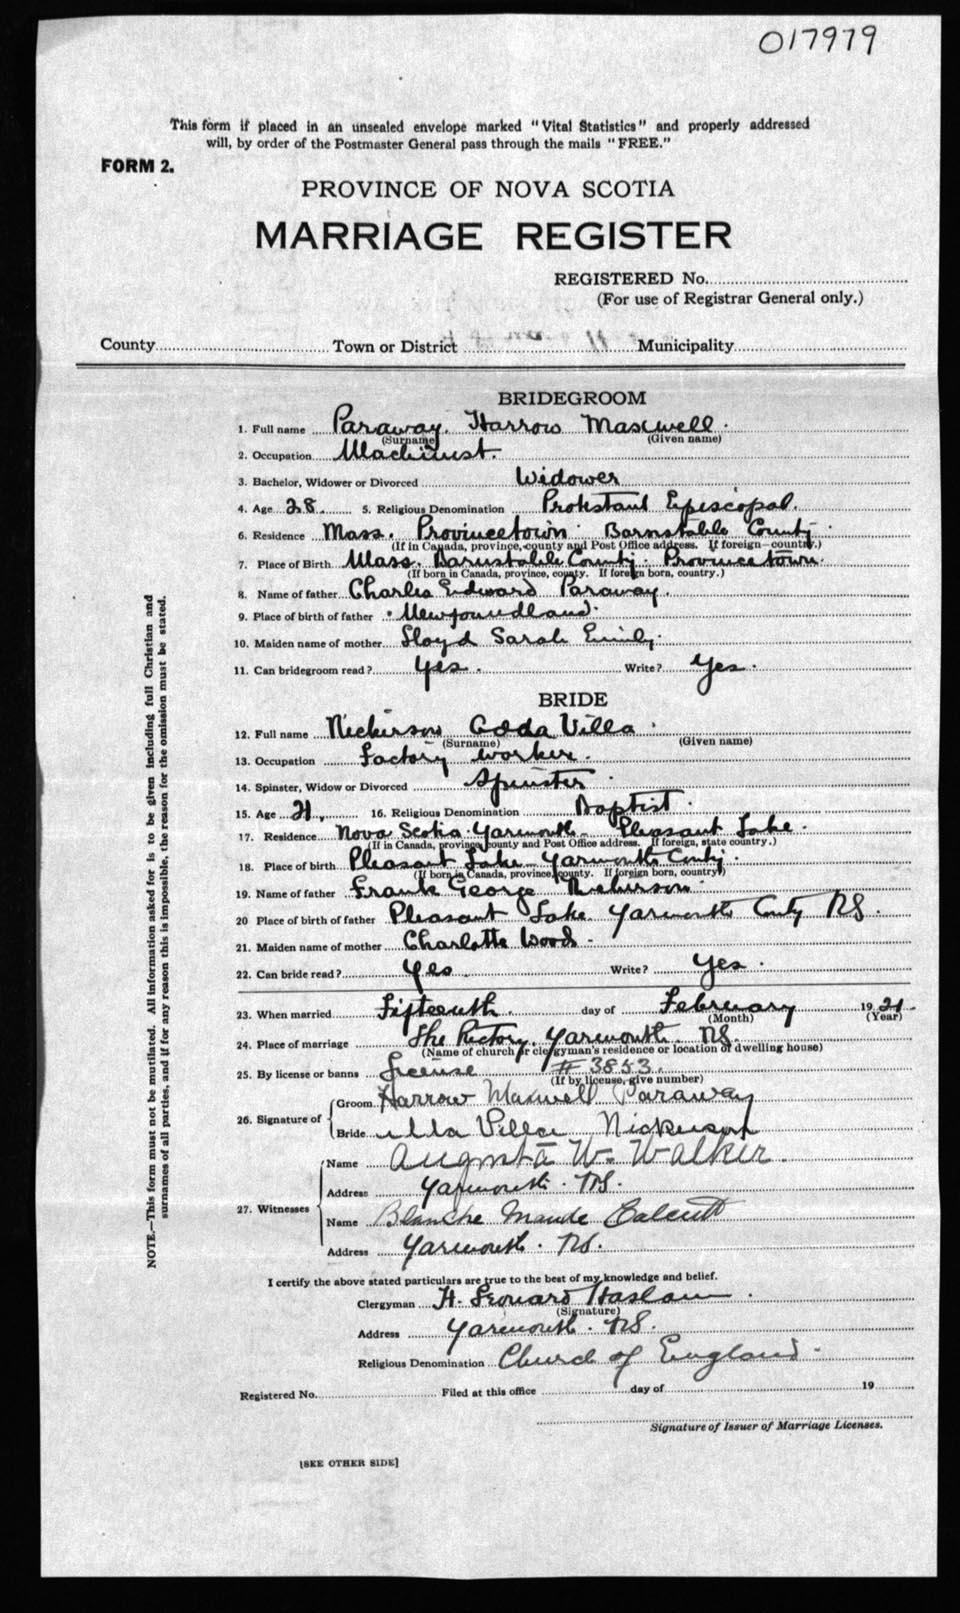 017979
This form if placed in an unsealed envelope marked "Vital Statistics" and properly addressed
will, by order of the Postmaster General pass through the mails "FREE."
FORM 2.
PROVINCE OF NOVA SCOTIA
MARRIAGE REGISTER
REGISTERED No.
(For use of Registrar General only.)
County Town or District Municipality
BRIDEGROOM
1. Full name Paraway Harrow Maxwell.
(Surname) (Given name)
2. Occupation Machinist.
3. Bachelor, Widower or Divorced Widower
4. Age 28. 5. Religious Denomination Protestant Episcopal.
6. Residence Mass. Provincetown Barnstable County.
(If in Canada, province, county and Post Office address. If foreign—country.)
7. Place of Birth Mass. Barnstable County. Provincetown.
(If born in Canada, province, county. If foreign born, country.)
8. Name of father Charles Edward Paraway.
9. Place of birth of father Newfoundland.
10. Maiden name of mother Lloyd Sarah Emily.
11. Can bridegroom read? Yes. Write? Yes.
BRIDE
12. Full name Nickerson Villa
(Surname) (Given name)
13. Occupation Factory worker.
14. Spinster, Widow or Divorced Spinster
15. Age 21. 16. Religious Denomination Baptist.
17. Residence Nova Scotia. Yarmouth. Pleasant Lake.
(If in Canada, province, county and Post Office address. If foreign, state country.)
18. Place of birth Pleasant Lake Yarmouth County.
(If born in Canada, province, county. If foreign born, country)
19. Name of father Frank George Nickerson.
20 Place of birth of father Pleasant Lake. Yarmouth County NS.
21. Maiden name of mother Charlotte Wood.
22. Can bride read? Yes. Write? Yes.
23. When married Fifteenth. day of February 1921.
(Month) (Year)
24. Place of marriage The Rectory. Yarmouth. NS.
(Name of church or clergyman's residence or location of dwelling house)
25. By license or banns License # 3853.
(If by license, give number)
26. Signature of Groom Harrow Maxwell Paraway
Bride Villa Nickerson
27. Witnesses Name Augusta W. Walker.
Address Yarmouth. NS.
Name Blanche Maude Calcutt
Address Yarmouth. NS.
I certify the above stated particulars are true to the best of my knowledge and belief.
Clergyman H. Leonard Haslam.
(Signature)
Address Yarmouth. NS.
Religious Denomination Church of England.
Registered No. Filed at this office day of 19
Signature of Issuer of Marriage Licenses.
[SEE OTHER SIDE]
NOTE.—This form must not be mutilated. All information asked for is to be given including full Christian and
surnames of all parties, and if for any reason this is impossible, the reason for the omission must be stated.